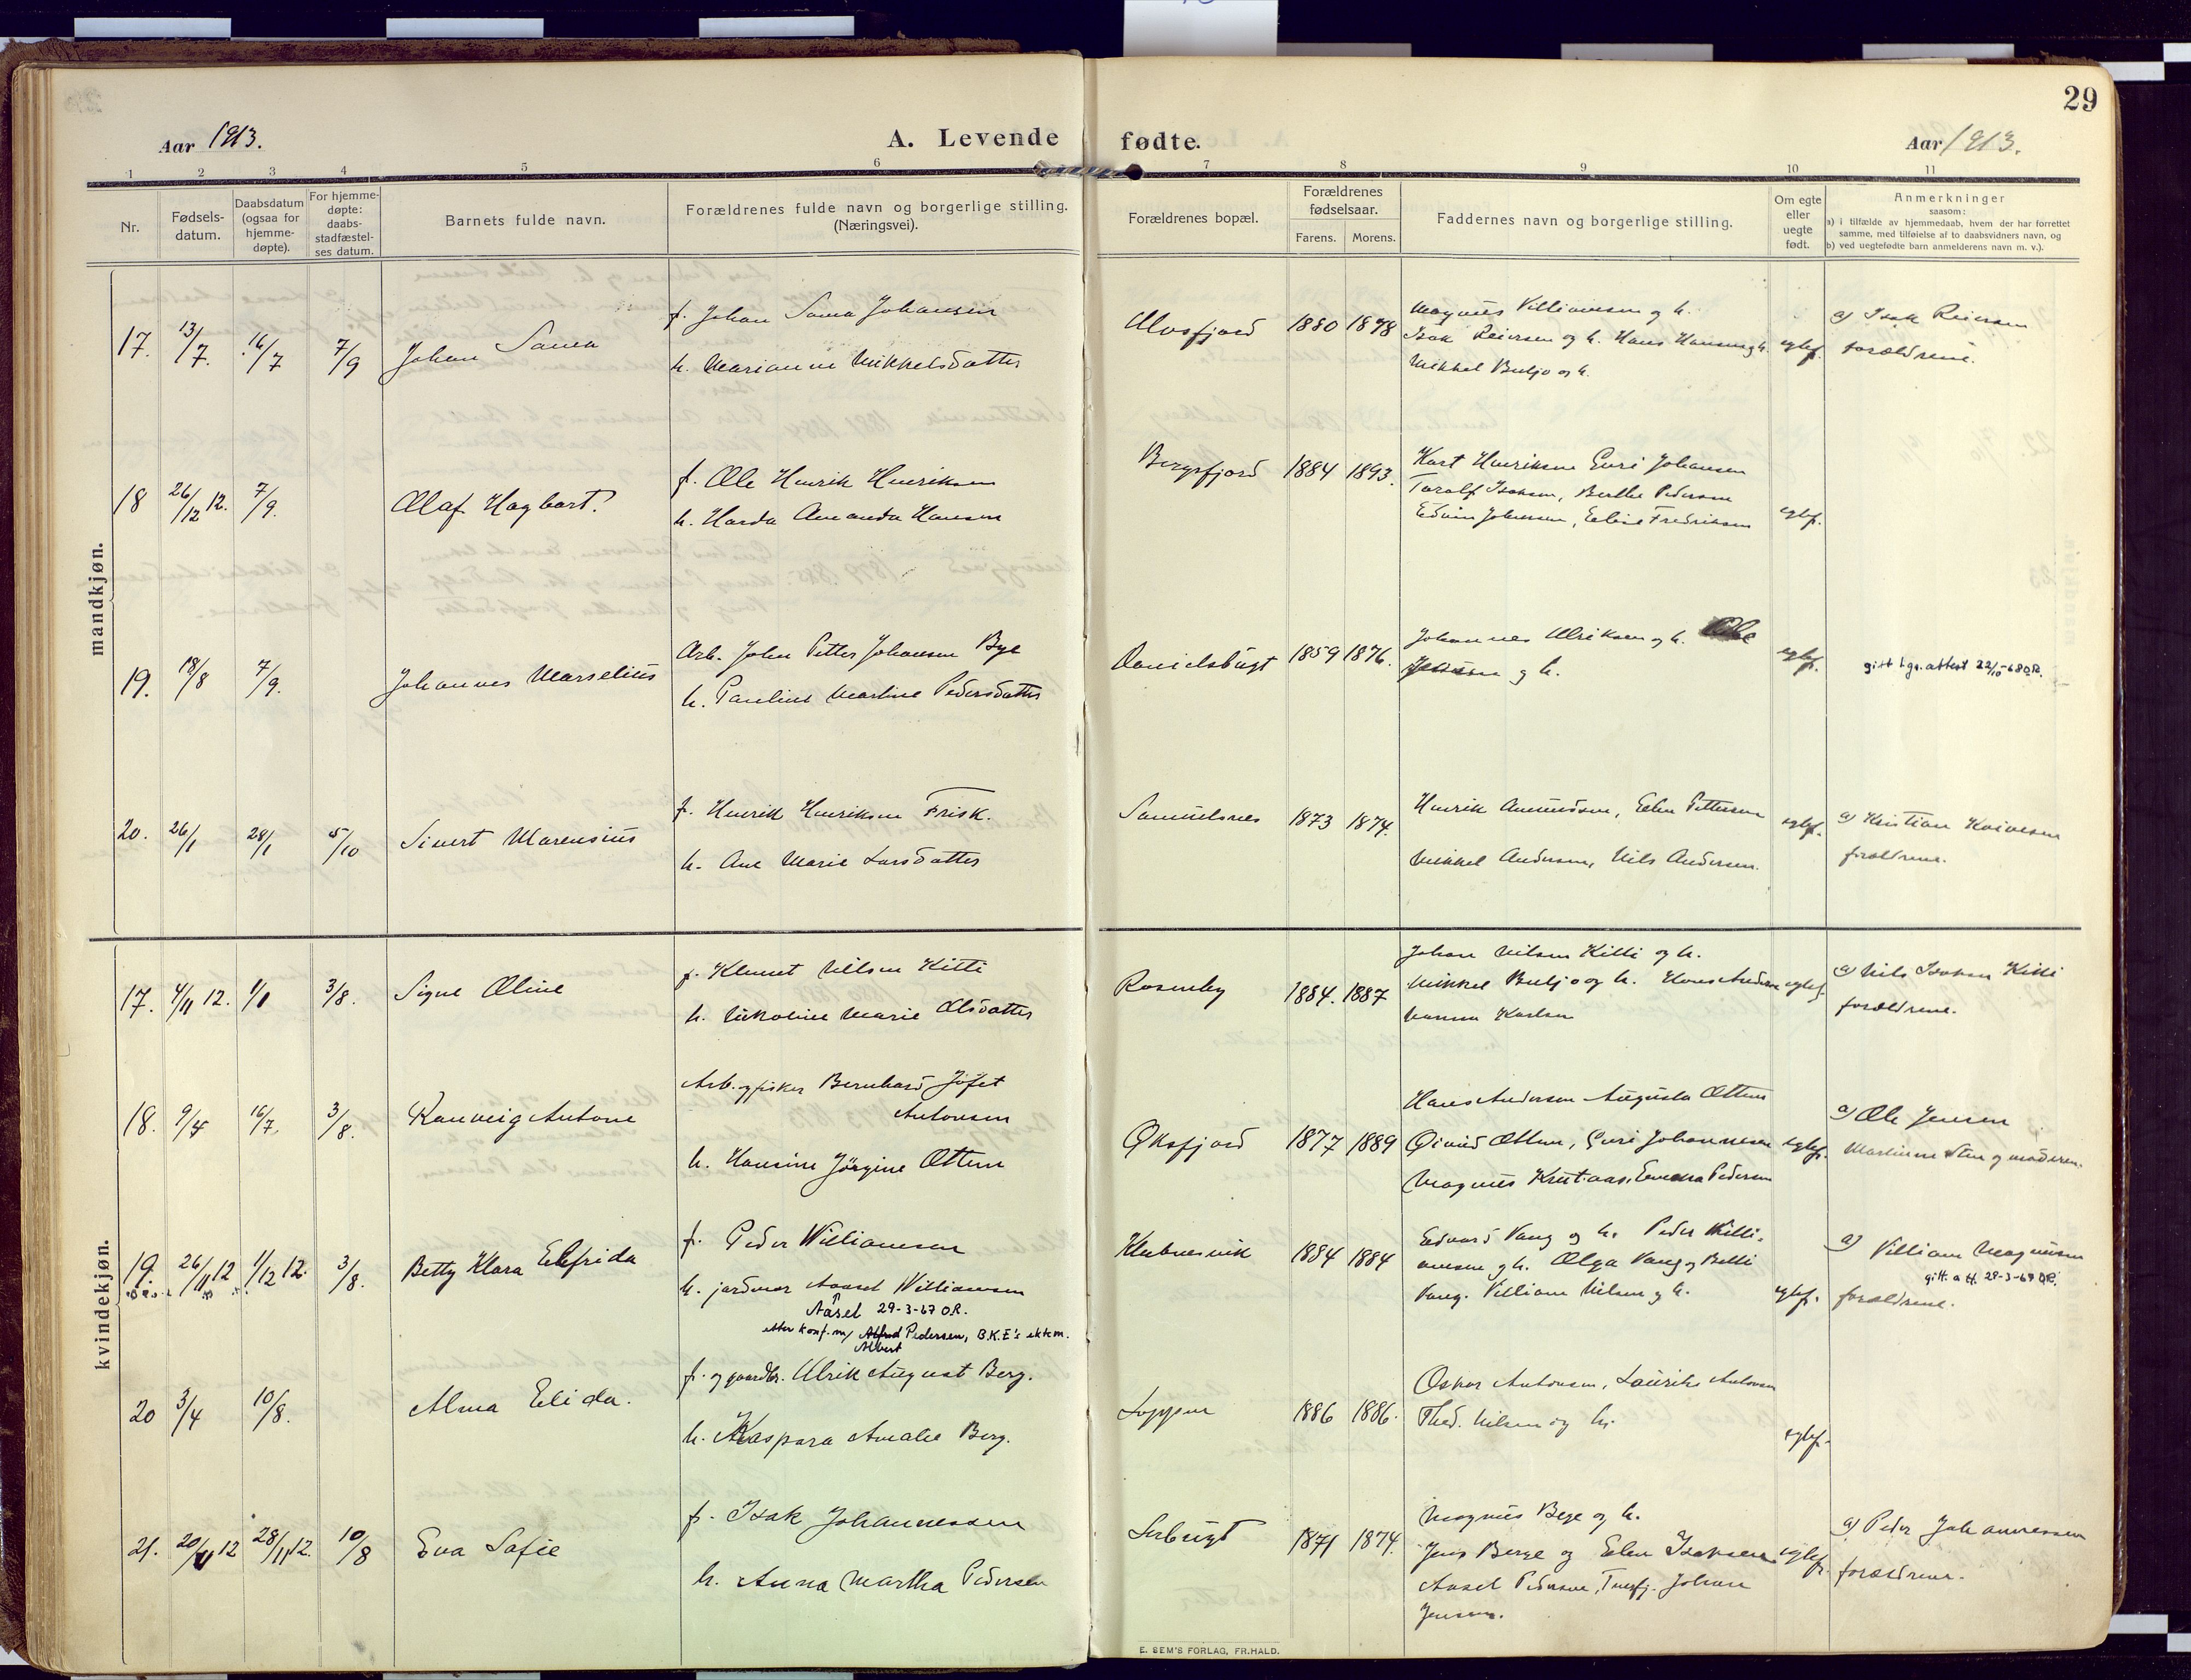 29
Aar 1913.
A. Levende fødte.
Aar 1913.
1 2 3 4 5 6 7 8 9 10 11
Nr.
Fødsels-
datum.
Daabsdatum
(ogsaa for
hjemme-
døpte).
For hjemme-
døpte:
daabs-
stadfæstel-
ses datum.
Barnets fulde navn.
Forældrenes fulde navn og borgerlige stilling.
(Næringsvei).
Forældrenes bopæl.
Forældrenes
fødselsaar.
Farens. Morens.
Faddernes navn og borgerlige stilling.
Om egte
eller
uegte
født.
Anmerkninger
saasom:
a) i tilfælde av hjemmedaab, hvem der har forrettet
samme, med tilføielse af to daabsvidners navn, og
b) ved uegtefødte barn anmelderens navn m. v.).
mandkjøn.
17. 13/7. 16/7 7/9 Johan Samu
f. Johan Samu Johansen
h. Marianne Mikkelsdatter
Ulvsfjord 1880 1878
Magnus Villiamsen og h.
Isak Reiersen og h. Hans Hansen og h.
Mikkel Buljo og h.
egtef.
a) Isak Reiersen
forældrene.
18 26/12 12. 7/9. Olaf Hagbart.
f. Ole Henrik Henriksen
h. Harda Amanda Hansen
Bergsfjord 1884 1893.
Kart Henriksen Guri Johansen
Toralf Isaksen, Berthe Pedersen
Edvin Johansen, Eline Fredriksen
egtef.
19. 18/8 7/9. Johannes Marselius
Arb. John Petter Johansen Bye
h. Pauline Martine Pedersdatter
Danielsbugt 1859 1876.
Johannes Ulriksen og h. Ole
Jensen og h.
egtef.
gift l gv. attest 22/10-68 O.R.
20. 26/1 28/1 5/10 Sivert Marensius
f. Henrik Henriksen Frisk.
h. Ane Marie Larsdatter
Samuelsnes 1873 1874.
Henrik Amundsen, Elen Pettersen
Mikkel Andersen, Nils Andersen.
egtef.
a) Kristian Kvivesen
forældrene.
kvindekjøn.
17. 4/11 12. 1/1 3/8. Signe Oline
f. Klemet Nilsen Kitti
h. Nikoline Marie Olsdatter
Rosenby 1884. 1887
Johan Nilsen Kitti og h.
Mikkel Buljo og h. Hans Andersen
Hanna Karlsen
egtef.
a) Nils Isaksen Kitti
forældrene.
18. 9/4 16/7. 3/8. Ranveig Antone
Arb. og fisker Bernhard Jöfet
Antonsen
h. Hansine Jörgine Ottem
Øksfjord 1877 1889
Hans Andersen Augusta Ottem
Øivind Ottem, Guri Johannesen
Magnus Knutaas, Emma Pedersen
egtef.
a) Ole Jensen
Martinus Sten og moderen.
19. 26/11 12 1/12 12. 3/8. Betty Klara Elfrida
f. Peder Williamsen
h. jordmor Aasel Williamsen
Aasel 29-3-67 O.R.
etter konf. m/ Alfred Pedersen, B.K.E's ektem.
Albert
Klubnesvik 1884 1884
Edvard Vang og h. Peder Willi-
amsen og h. Olga Vang og Betti
Vang. Villiam Nilsen og h.
egtef.
a) Villiam Magnusen
gift. att. 29-3-67 O.R.
forældrene.
20 3/4 10/8. Alma Elida.
f. og gaardbr. Ulrik August Berg.
h. Kaspara Amalie Berg.
Loppen 1886 1886.
Oskar Antonsen, Laurits Antonsen
Thed. Nilsen og h.
egtef.
21. 20/11 12 28/11 12. 10/8 Eva Sofie
f. Isak Johannessen
h. Anna Martha Pedersen
Serbugt 1871 1874.
Magnus Berge og h.
Jens Berge og Elen Isaksen
Aasel Pedersen, Tverfj. Johan
Jensen.
egtef.
a) Peder Johannessen
forældrene.
E. SEM'S FORLAG, FR.HALD.